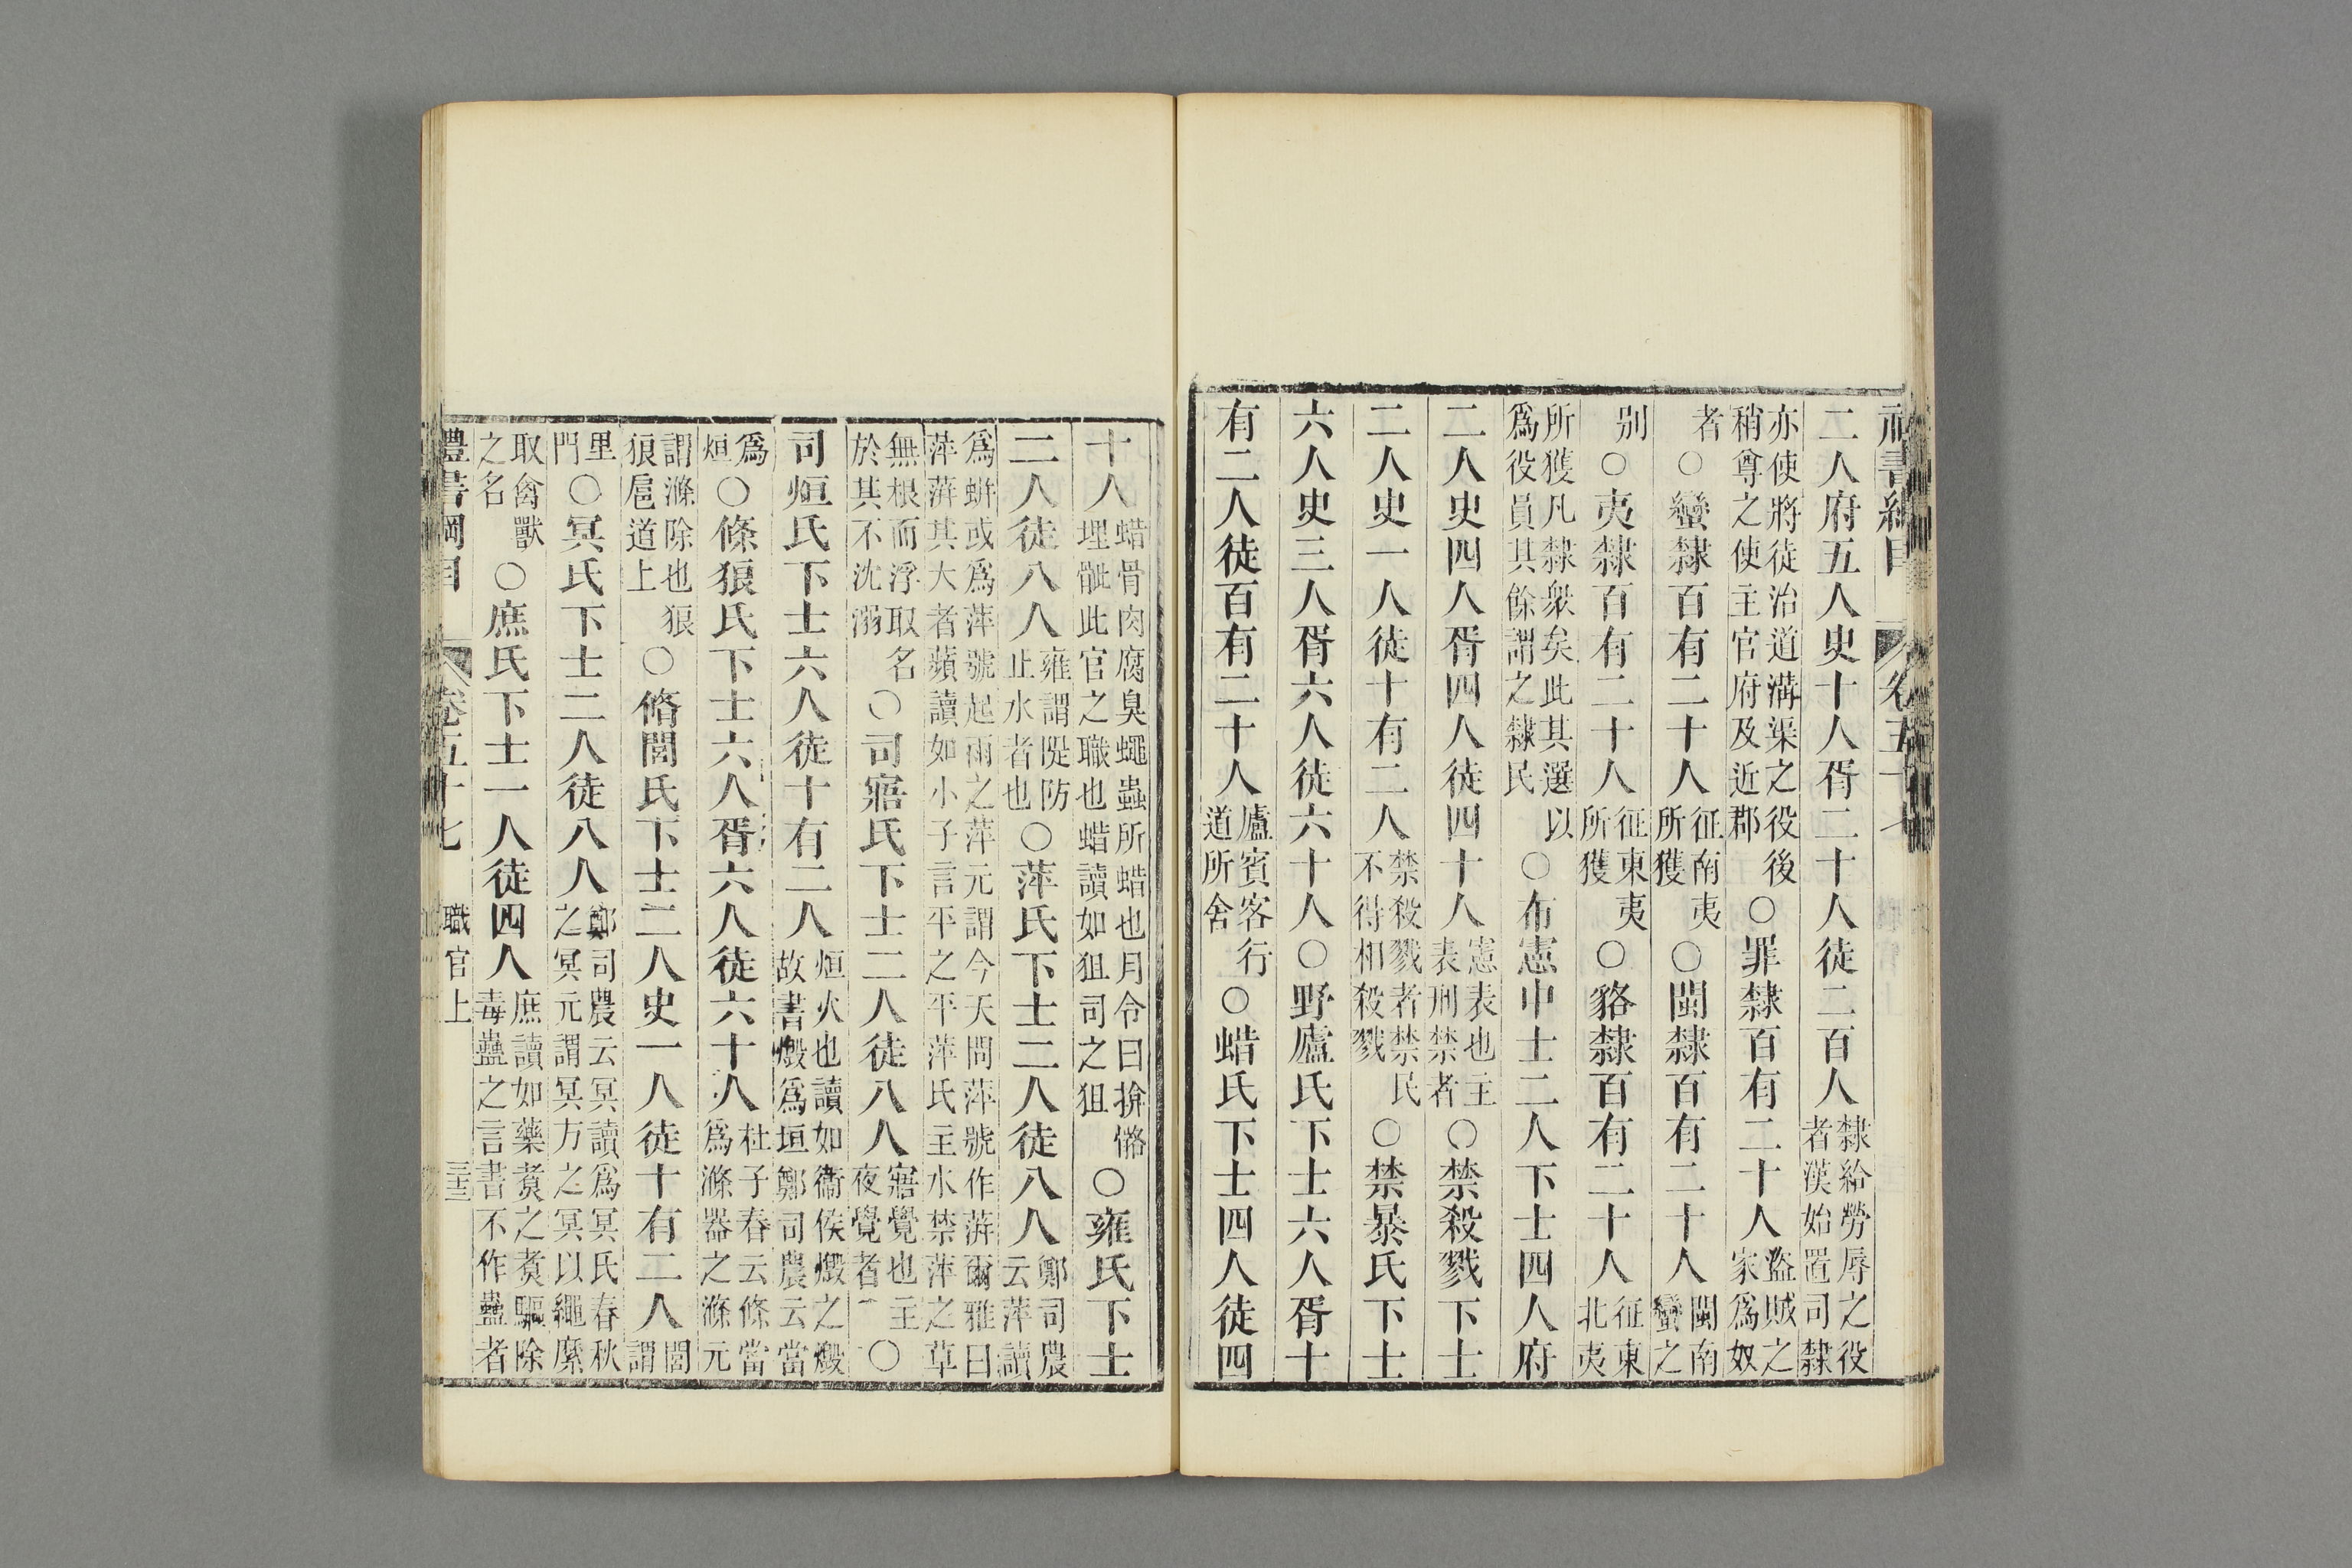 禮書綱目 卷五十七
二人府五人史十人胥二十人徒二百人隸給勞辱之役者漢始置司隸
亦使將徒治道溝渠之役後稍尊之使主官府及近郡○罪隸百有二十人盜賊之家爲奴
者○蠻隸百有二十人征南夷所獲○閩隸百有二十人閩南蠻之
别○夷隸百有二十人征東夷所獲○貉隸百有二十人征東北夷
所獲凡隸衆矣此其選以爲役員其餘謂之隸民○布憲中士二人下士四人府
二人史四人胥四人徒四十人憲表也主表刑禁者○禁殺戮下士
二人史一人徒十有二人禁殺戮者禁民不得相殺戮○禁暴氏下士
六人史三人胥六人徒六十人○野廬氏下士六人胥十
有二人徒百有二十人廬賓客行道所舍○蜡氏下士四人徒四
十人蜡骨肉腐臭蠅蟲所蜡也月令曰掩骼埋骴此官之職也蜡讀如狙司之狙○雍氏下士
二人徒八人雍謂隄防止水者也○萍氏下士二人徒八人鄭司農云萍讀
爲蛢或爲萍號起雨之萍元謂今天問萍號作蓱爾雅曰萍蓱其大者蘋讀如小子言平之平萍氏主水禁萍之草
無根而浮取名於其不沈溺○司寤氏下士二人徒八人寤覺也主夜覺者○
司烜氏下士六人徒十有二人烜火也讀如衞侯燬之燬故書燬爲垣鄭司農云當
爲烜○條狼氏下士六人胥六人徒六十人杜子春云條當爲滌器之滌元
謂滌除也狼狼扈道上○脩閭氏下士二人史一人徒十有二人閭謂
里門○冥氏下士二人徒八人鄭司農云冥讀爲冥氏春秋之冥元謂冥方之冥以繩縻
取禽獸之名○庶氏下士一人徒四人庶讀如藥煑之煑驅除毒蠱之言書不作蠱者
禮書綱目 卷五十七 職官上 三十三